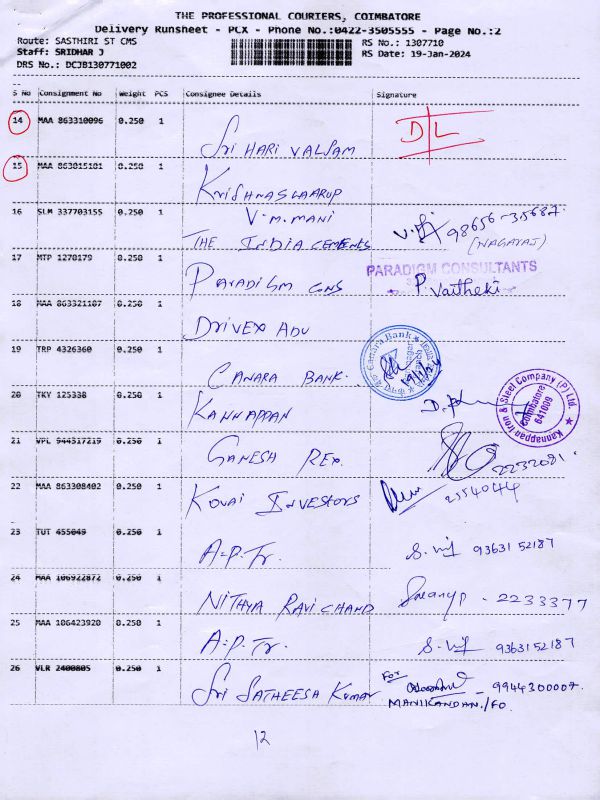 THE PROFESSIONAL COURIERS, COIMBATORE
Delivery Runsheet - PCX - Phone No.:0422-3505555 - Page No.:2
Route: SASTHIRI ST CMS
RS No.: 1307710
Staff: SRIDHAR J
RS Date: 19-Jan-2024
DRS No.: DCJB130771002
S No Consignment No Weight PCS Consignee Details Signature
14 MAA 863310096 0.250 1 SRI HARI VALSAM D/L
15 MAA 863015101 0.250 1 KRISHNASWARUP
16 SLM 337703155 0.250 1 V.M.MANI
THE INDIA CEMENTS 98656-35687.
(NAGARAJ)
17 MTP 1270179 0.250 1 PARADIGM CONS
PARADIGM CONSULTANTS
P. Vaitheki
18 MAA 863321107 0.250 1 DRIVEX ADV
19 TRP 4326360 0.250 1 CANARA BANK.
Canara Bank
19/1/24
20 TKY 125338 0.250 1 KANNAPPAN
Kannappan Iron & Steel Company (P) Ltd.
Coimbatore
641009
21 VPL 944317219 0.250 1 GANESH REX.
2232091.
22 MAA 863308402 0.250 1 KOVAI INVESTORS
23 TUT 455049 0.250 1 A.P.Tr. 93631 52187
24 MAA 106922872 0.250 1 NITHYA RAVICHAND 2233377
25 MAA 106423920 0.250 1 A.P.Tr. 9363152187
26 VLR 2400805 0.250 1 SRI SATHEESH KUMAR For 9944300007.
MANIKANDAN./FO.
12